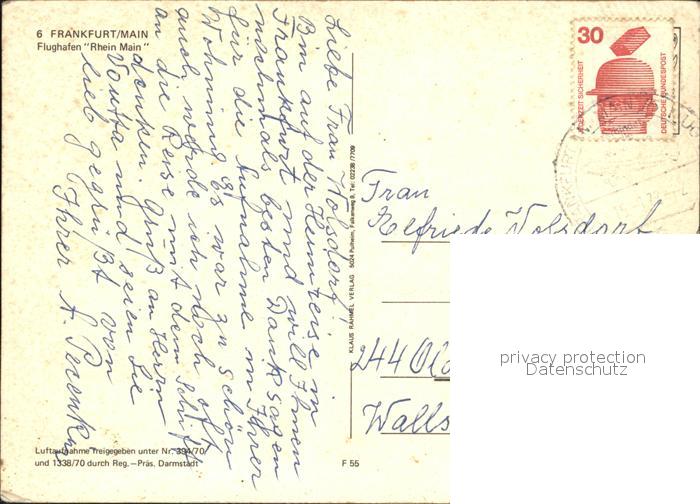 6 FRANKFURT/MAIN
Flughafen "Rhein Main"
Liebe Frau Wolsdorf!
Bin auf der Heimreise in
Frankfurt und will Ihnen
nochmals besten Dank sagen
für die Aufnahme in Ihrer
Wohnung. Es war zu schön
auch werde ich noch oft
an die Reise mit dem Schiff
denken. Gruß an Herrn
und seien Sie
lieb gegrüßt von
Ihrer A.
Luftaufnahme freigegeben unter Nr. 394/70
und 1338/70 durch Reg.-Präs. Darmstadt
F 55
KLAUS RAHMEL VERLAG 5024 Pulheim, Falkenweg 9, Tel. 02238/7709
30
JEDERZEIT SICHERHEIT
DEUTSCHE BUNDESPOST
Frau
Helfriede Wolsdorf
244 Old
Walls
privacy protection
Datenschutz